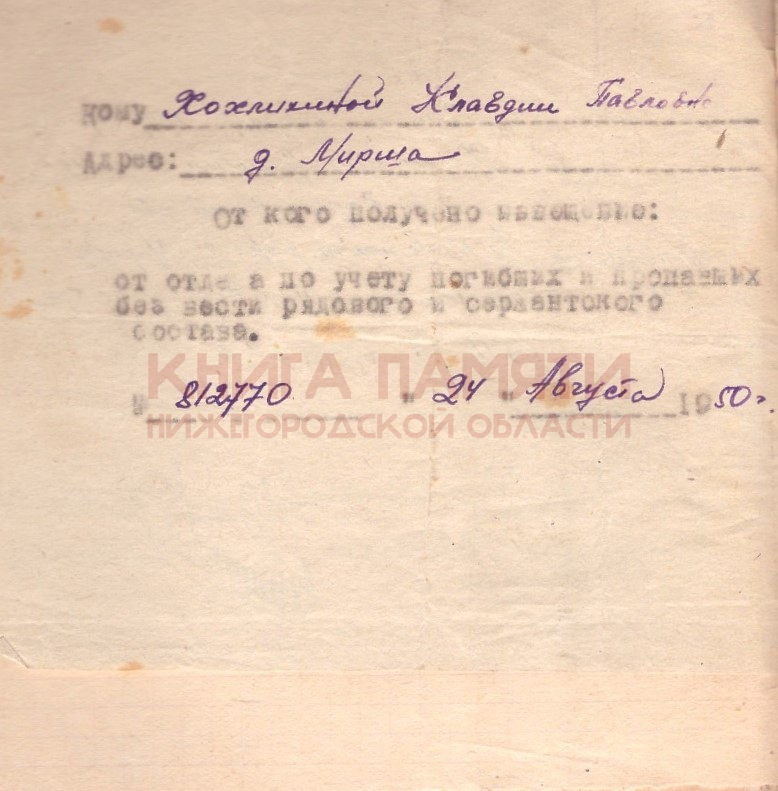 Кому Хохликиной Клавдии Павловн
Адрес: д. Мирша
От кого получено извещение:
от отдела по учету погибших и пропавших
без вести рядового и сержантского
состава.
КНИГА ПАМЯТИ
№ 812770 " 24 " Августа 1950 г.
НИЖЕГОРОДСКОЙ ОБЛАСТИ